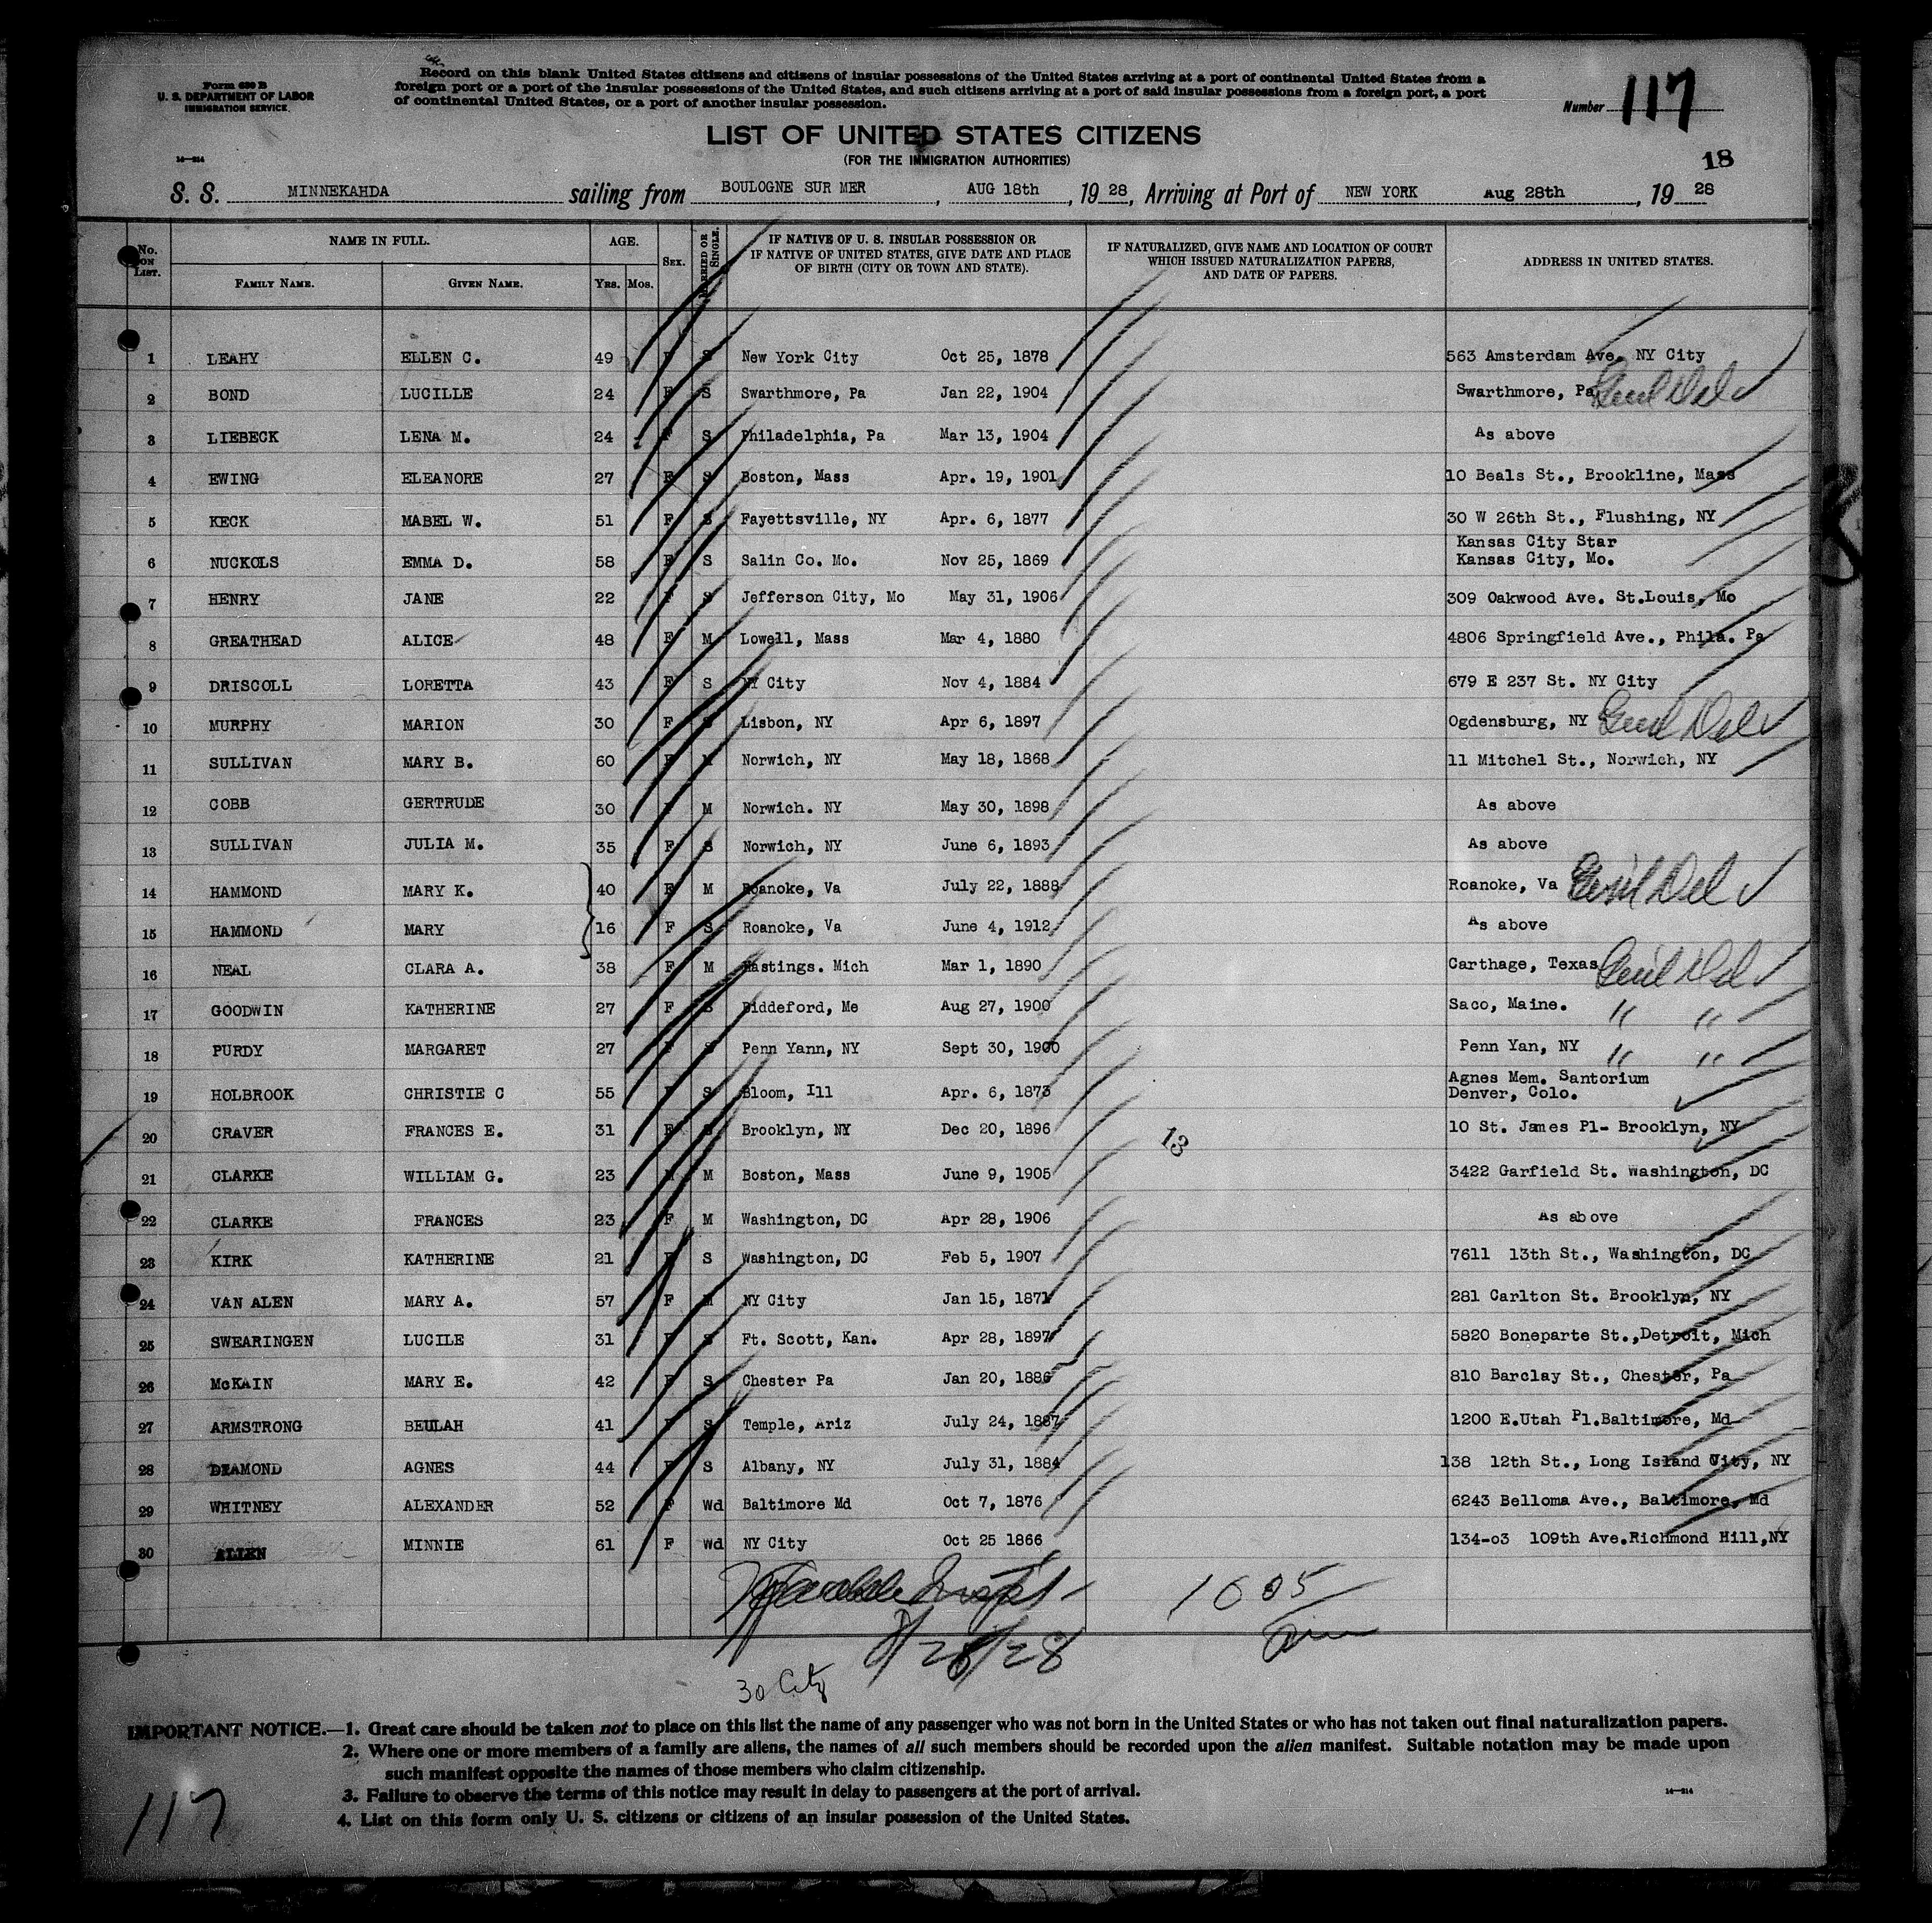 Form 630 B
U. S. DEPARTMENT OF LABOR
IMMIGRATION SERVICE.
Record on this blank United States citizens and citizens of insular possessions of the United States arriving at a port of continental United States from a
foreign port or a port of the insular possessions of the United States, and such citizens arriving at a port of said insular possessions from a foreign port, a port
of continental United States, or a port of another insular possession.
Number 117
LIST OF UNITED STATES CITIZENS
(FOR THE IMMIGRATION AUTHORITIES)
14—214
18
S. S. MINNEKAHDA sailing from BOULOGNE SUR MER, AUG 18th, 1928, Arriving at Port of NEW YORK Aug 28th, 1928
No. ON LIST. NAME IN FULL. AGE. SEX. MARRIED OR SINGLE. IF NATIVE OF U. S. INSULAR POSSESSION OR IF NATIVE OF UNITED STATES, GIVE DATE AND PLACE OF BIRTH (CITY OR TOWN AND STATE). IF NATURALIZED, GIVE NAME AND LOCATION OF COURT WHICH ISSUED NATURALIZATION PAPERS, AND DATE OF PAPERS. ADDRESS IN UNITED STATES.
FAMILY NAME. GIVEN NAME. YRS. MOS.
1 LEAHY ELLEN C. 49 F S New York City Oct 25, 1878 563 Amsterdam Ave. NY City
2 BOND LUCILLE 24 F S Swarthmore, Pa Jan 22, 1904 Swarthmore, Pa Genl Del
3 LIEBECK LENA M. 24 F S Philadelphia, Pa Mar 13, 1904 As above
4 EWING ELEANORE 27 F S Boston, Mass Apr. 19, 1901 10 Beals St., Brookline, Mass
5 KECK MABEL W. 51 F S Fayettsville, NY Apr. 6, 1877 30 W 26th St., Flushing, NY
6 NUCKOLS EMMA D. 58 F S Salin Co. Mo. Nov 25, 1869 Kansas City Star
Kansas City, Mo.
7 HENRY JANE 22 F S Jefferson City, Mo May 31, 1906 309 Oakwood Ave. St.Louis, Mo
8 GREATHEAD ALICE 48 F M Lowell, Mass Mar 4, 1880 4806 Springfield Ave., Phila. Pa
9 DRISCOLL LORETTA 43 F S NY City Nov 4, 1884 679 E 237 St. NY City
10 MURPHY MARION 30 F S Lisbon, NY Apr 6, 1897 Ogdensburg, NY Genl Del
11 SULLIVAN MARY B. 60 F M Norwich, NY May 18, 1868 11 Mitchel St., Norwich, NY
12 COBB GERTRUDE 30 F M Norwich. NY May 30, 1898 As above
13 SULLIVAN JULIA M. 35 F S Norwich, NY June 6, 1893 As above
14 HAMMOND MARY K. 40 F M Roanoke, Va July 22, 1888 Roanoke, Va Genl Del
15 HAMMOND MARY 16 F S Roanoke, Va June 4, 1912 As above
16 NEAL CLARA A. 38 F M Hastings. Mich Mar 1, 1890 Carthage, Texas Genl Del
17 GOODWIN KATHERINE 27 F S Biddeford, Me Aug 27, 1900 Saco, Maine. " "
18 PURDY MARGARET 27 F S Penn Yann, NY Sept 30, 1900 Penn Yan, NY " "
19 HOLBROOK CHRISTIE C 55 F S Bloom, Ill Apr. 6, 1873 Agnes Mem. Santorium
Denver, Colo.
20 CRAVER FRANCES E. 31 F S Brooklyn, NY Dec 20, 1896 13 10 St. James Pl- Brooklyn, NY
21 CLARKE WILLIAM G. 23 M M Boston, Mass June 9, 1905 3422 Garfield St. Washington, DC
22 CLARKE FRANCES 23 F M Washington, DC Apr 28, 1906 As above
23 KIRK KATHERINE 21 F S Washington, DC Feb 5, 1907 7611 13th St., Washington, DC
24 VAN ALEN MARY A. 57 F M NY City Jan 15, 1871 281 Carlton St. Brooklyn, NY
25 SWEARINGEN LUCILE 31 F S Ft. Scott, Kan. Apr 28, 1897 5820 Boneparte St.,Detroit, Mich
26 McKAIN MARY E. 42 F S Chester Pa Jan 20, 1886 810 Barclay St., Chester, Pa
27 ARMSTRONG BEULAH 41 F S Temple, Ariz July 24, 1887 1200 E.Utah Pl.Baltimore, Md
28 DIAMOND AGNES 44 F S Albany, NY July 31, 1884 138 12th St., Long Island City, NY
29 WHITNEY ALEXANDER 52 F Wd Baltimore Md Oct 7, 1876 6243 Belloma Ave., Baltimore, Md
30 ALLEN MINNIE 61 F Wd NY City Oct 25 1866 134-03 109th Ave.Richmond Hill,NY
1605
8/28/28
30 City
IMPORTANT NOTICE.—1. Great care should be taken not to place on this list the name of any passenger who was not born in the United States or who has not taken out final naturalization papers.
2. Where one or more members of a family are aliens, the names of all such members should be recorded upon the alien manifest. Suitable notation may be made upon
such manifest opposite the names of those members who claim citizenship.
3. Failure to observe the terms of this notice may result in delay to passengers at the port of arrival.
14—214
4. List on this form only U. S. citizens or citizens of an insular possession of the United States.
117